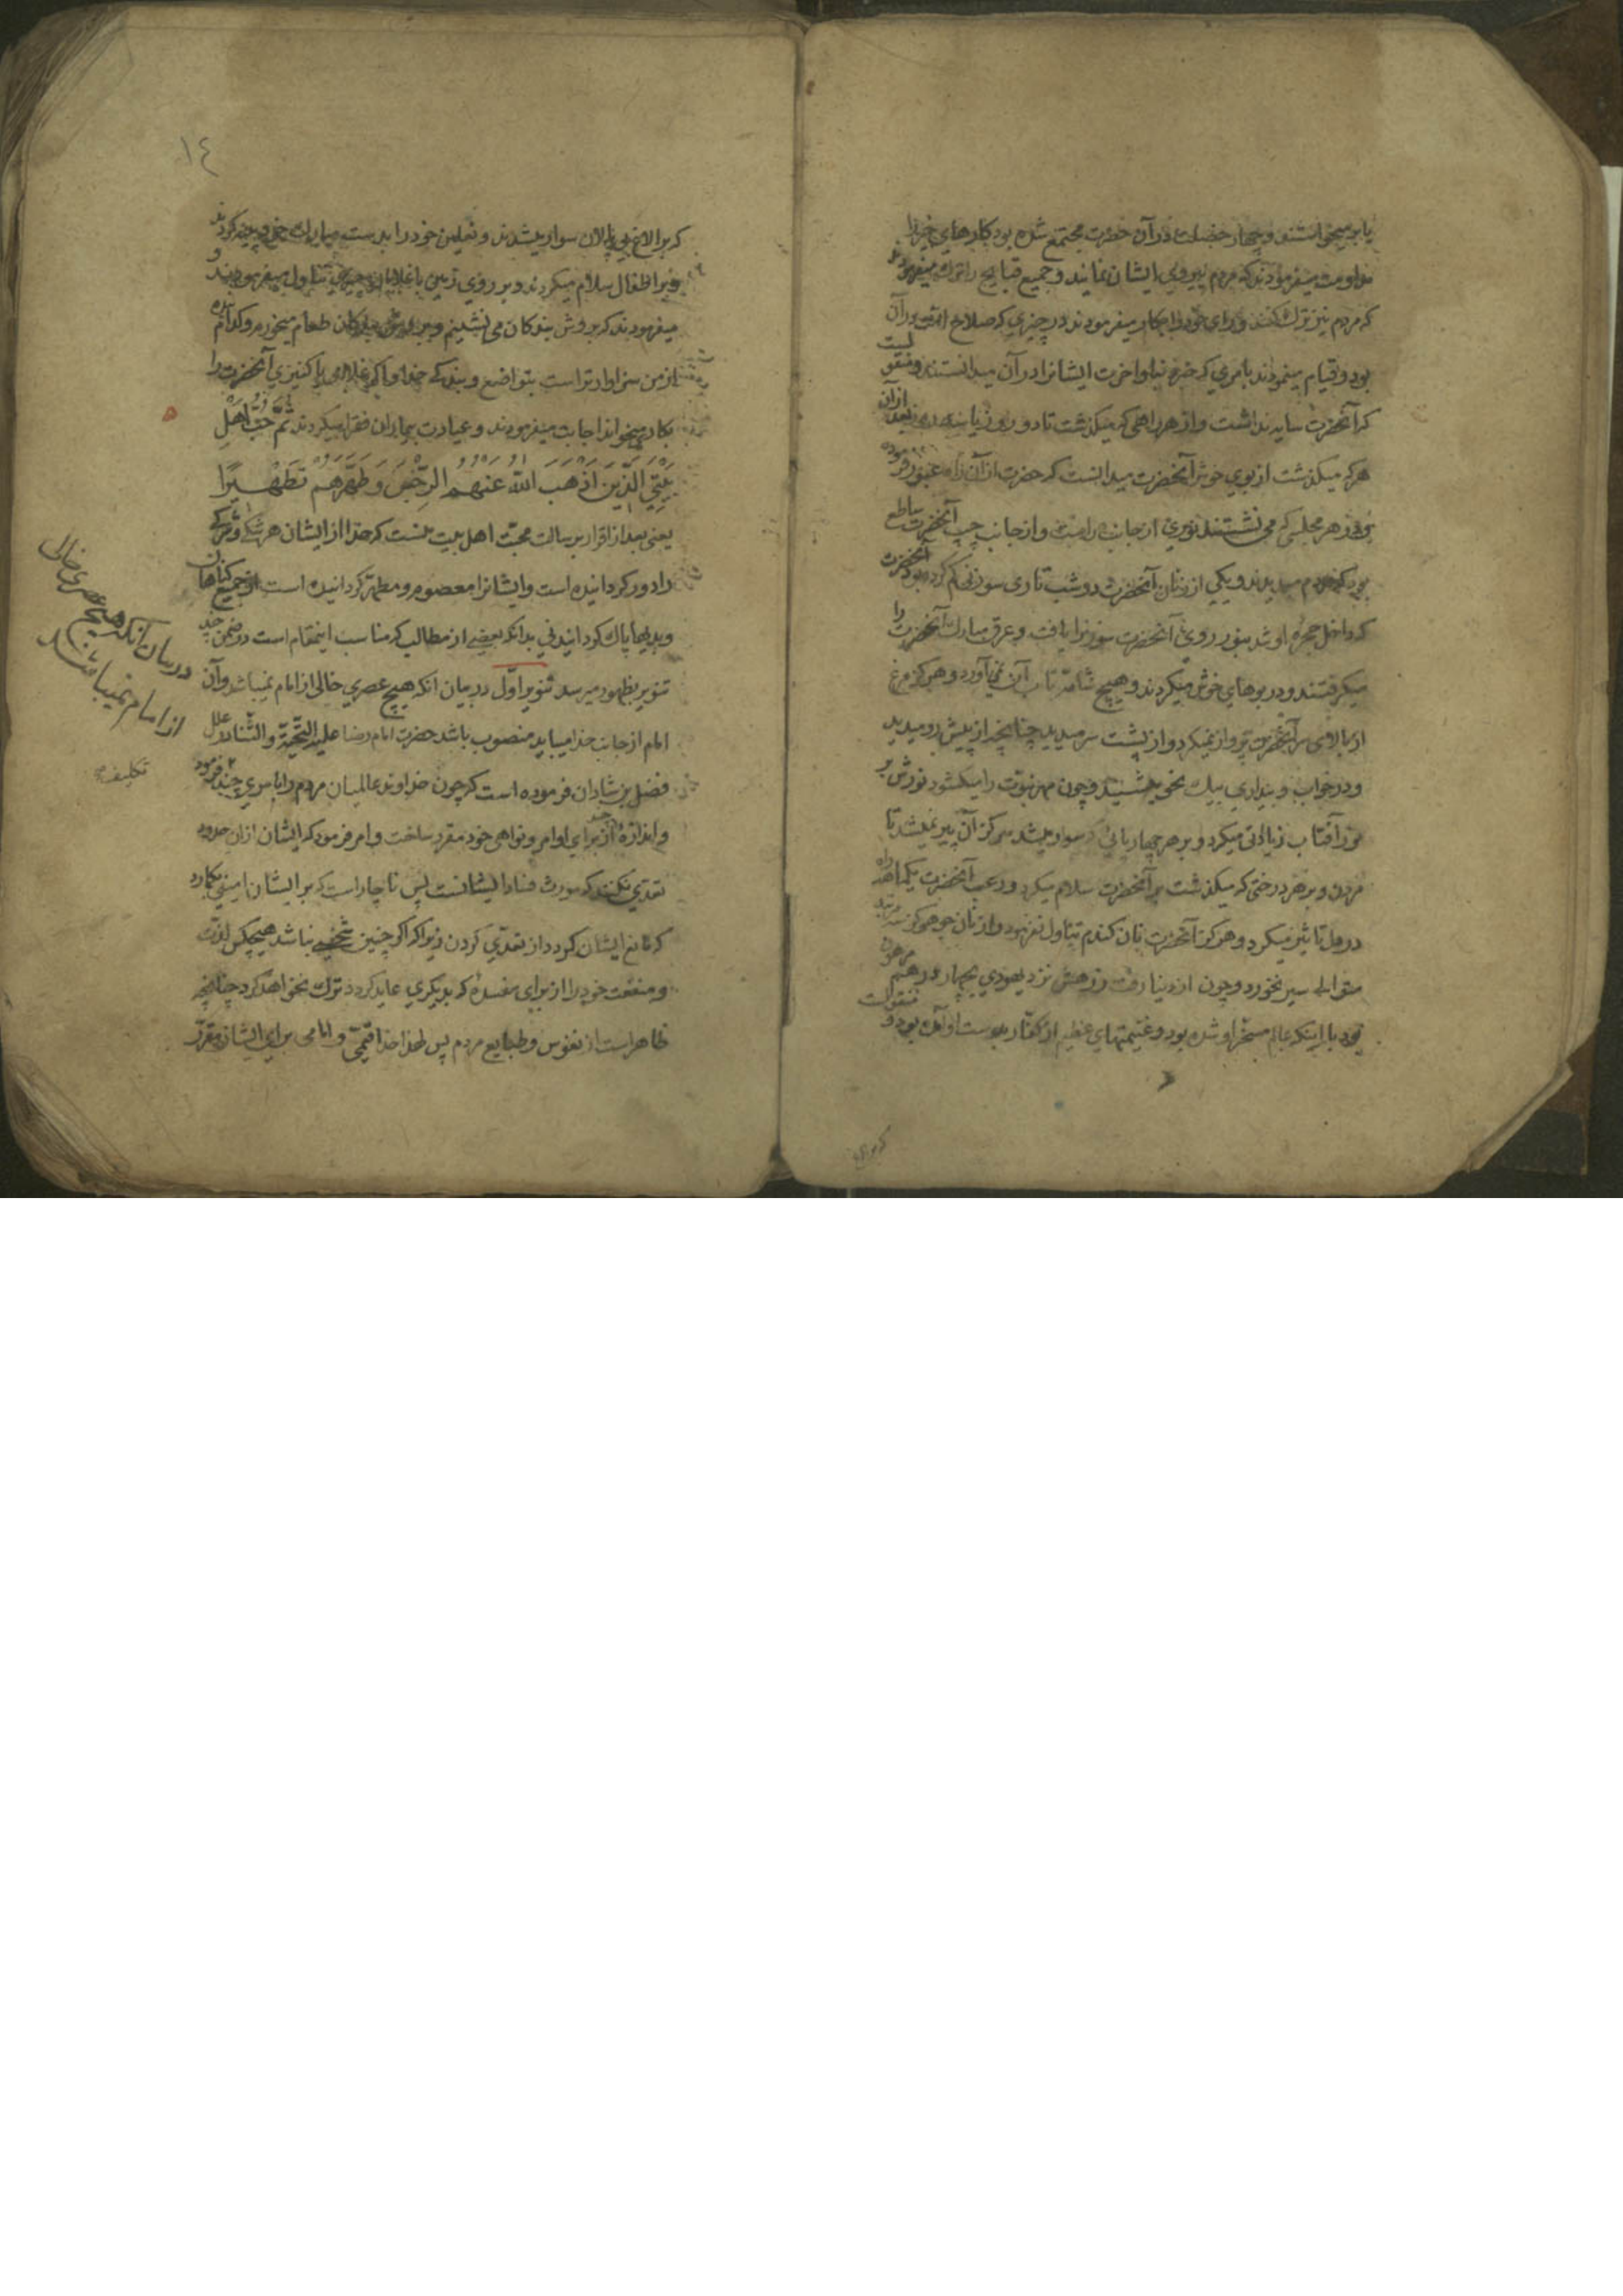 یا بر میخواستند و چهار خصلت در آن حضرت مجتمع شده بود کارهای خیر را
مداومت میفرمودند که مردم پیروی ایشان نمایند و جمیع قبایح را ترک میفرمود
که مردم نیز ترک کنند و رای خود را بکار میفرمودند در چیزی که صلاح امت در آن
بود و قیام مینمودند بامری که خیر دنیا و اخرت ایشانرا در آن میدانستند و منقولست
که آنحضرت سایه نداشت و از هر راهی که میکذشت تا دو روز یا سه روز بعد از آن
هر که میکذشت از بوی خوش آنحضرت میدانست که حضرت از آن راه عبور فرموده
و در هر مجلسی که می نشستند نوری از جانب راست و از جانب چپ آنحضرت ساطع
بود که مردم میدیدند و یکی از زنان آنحضرت در شب تاری سوزنی کم کرده بود آنحضرت
که داخل حجره او شد بنور روی آنحضرت سوزنرا یافت و عرق مبارک آنحضرت را
میکرفتند و در بوهای خوش میکردند و هیچ شامه تاب آن نمی آورد و هرکز مرغ
از بالای سر آنحضرت پرواز نمیکرد و از پشت سر میدید چنانچه از پیش رو میدید
و در خواب و بیداری بیک نحو میشنید و چون مهر نبوت را میکشود نورش بر
نور آفتاب زیادتی میکرد و بر هر چهارپائی که سوار میشد هرکز آن پیر نمیشد تا
مردن و بر هر درختی که میکذشت بر آنحضرت سلام میکرد و رعب آنحضرت یکماهه راه
در دل تاثیر میکرد و هرکز آنحضرت نان کندم تناول نفرمود و از نان جو هرکز سه مرتبه
متوالی سیر نخورد و چون از دنیا رفت زرهش نزد یهودی بچهار درهم مرهون
بود با اینکه عالم مسخر او شده بود و غنیمتهای عظیم از کفار بدست او آمده بود و منقولست
که بر الاغ
١٤
که بر الاغ بی پالان سوار میشدند و نعلین خود را بدست مبارک خود پینه کردند
و بر اطفال سلام میکردند و بر روی زمین با غلامان چیزی تناول میفرمودند و
میفرمودند که بروش بندکان می نشینم و بروش بندکان طعام میخورم و کدام بنده
از من سزاوارتر است بتواضع و بندکی خدا و اکر غلامی یا کنیزی آنحضرت را
بکاری میخواند اجابت میفرمودند و عیادت بیماران فقرا میکردند ثُمَّ حُبَّ اَهْلِ
بَیْتِیَ الَّذِینَ اَذْهَبَ اللّٰهُ عَنْهُمُ الرِّجْسَ وَ طَهَّرَهُمْ تَطْهِیرًا
یعنی بعد از اقرار برسالت محبت اهل بیت منست که خدا از ایشان هر شکی و شرکی
را دور کردانیده است و ایشانرا معصوم و مطهر کردانیده است از جمیع کناهان
و بدیها پاک کردانیدنی بدانکه بعضی از مطالب که مناسب اینمقام است در ضمن چند
تنویر بظهور میرسد تنویر اوّل در بیان انکه هیچ عصری خالی از امام نمیباشد و آن
امام از جانب خدا میباید منصوب باشد حضرت امام رضا علیه التحیّة و الثّنا در علل
فضل بن شاذان فرموده است که چون خداوند عالمیان مردم را بامری چند فرمود
و اندازهٔ از برای اوامر و نواهی خود مقرر ساخت و امر فرمود که ایشان از ان حدود
تعدّی نکنند که مورث فساد ایشانست پس ناچار است که بر ایشان امینی بکمارد
که مانع ایشان کردد از تعدّی کردن زیرا که اکر چنین شخصی نباشد هیچکس لذّت
و منفعت خود را از برای مفسدهٔ که بدیکری عاید کردد ترک نخواهد کرد چنانچه
ظاهر است از نفوس و طبایع مردم پس لهذا خدا قیّمی و امامی برای ایشان مقرّر
در بیان آنکه هیچ عصری خالی
از امام نمیباشد
تکلیف